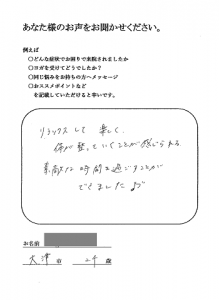 あなた様のお声をお聞かせください。
例えば
〇どんな症状でお困りで来院されましたか
〇ヨガを受けてどうでしたか?
〇同じ悩みをお持ちの方へメッセージ
〇おススメポイントなど
を記載していただけると幸いです。
リラックスして 楽しく、
体が整っていくことが感じられる
素敵な時間を過ごすことが
できました♪
お名前
大津 市 24 歳